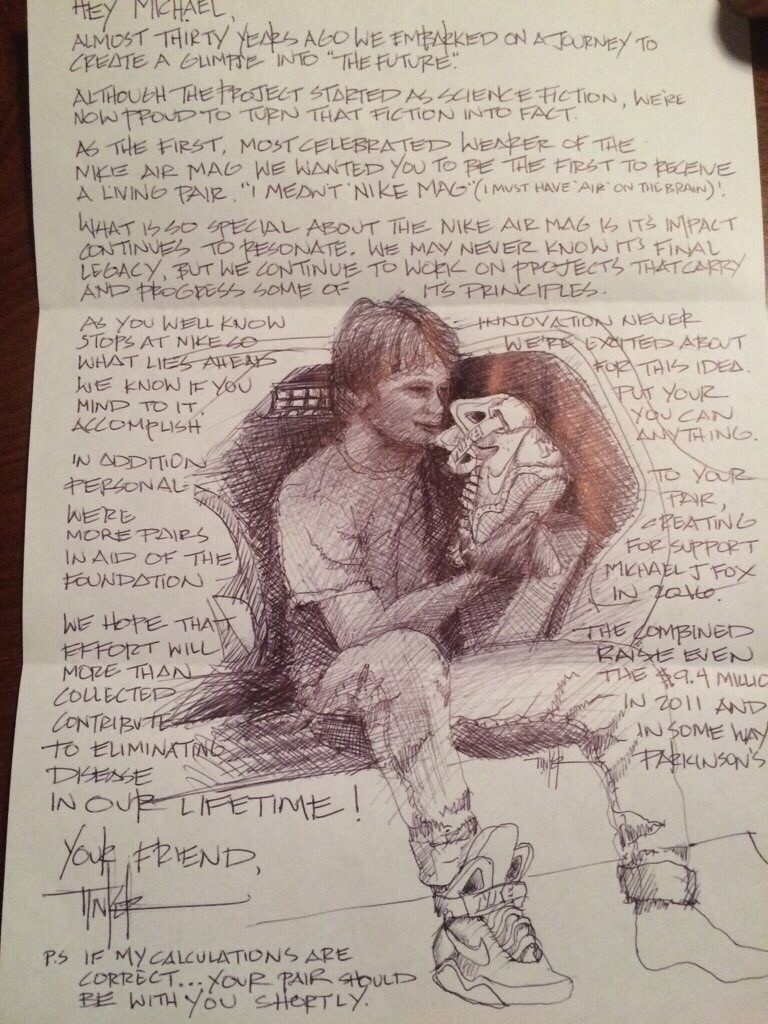 HEY MICHAEL,
ALMOST THIRTY YEARS AGO WE EMBARKED ON A JOURNEY TO
CREATE A GLIMPSE INTO "THE FUTURE."
ALTHOUGH THE PROJECT STARTED AS SCIENCE FICTION, WE'RE
NOW PROUD TO TURN THAT FICTION INTO FACT.
AS THE FIRST, MOST CELEBRATED WEARER OF THE
NIKE AIR MAG WE WANTED YOU TO BE THE FIRST TO RECEIVE
A LIVING PAIR. "I MEANT 'NIKE MAG' (I MUST HAVE 'AIR' ON THE BRAIN)'.
WHAT IS SO SPECIAL ABOUT THE NIKE AIR MAG IS ITS IMPACT
CONTINUES TO RESONATE. WE MAY NEVER KNOW IT'S FINAL
LEGACY, BUT WE CONTINUE TO WORK ON PROJECTS THAT CARRY
AND PROGRESS SOME OF ITS PRINCIPLES.
AS YOU WELL KNOW INNOVATION NEVER
STOPS AT NIKE SO WE'RE EXCITED ABOUT
WHAT LIES AHEAD FOR THIS IDEA.
WE KNOW IF YOU PUT YOUR
MIND TO IT. YOU CAN
ACCOMPLISH ANYTHING.
IN ADDITION TO YOUR
PERSONAL PAIR,
WE'RE CREATING
MORE PAIRS FOR SUPPORT
IN AID OF THE MICHAEL J FOX
FOUNDATION IN 2016.
WE HOPE THAT THE COMBINED
EFFORT WILL RAISE EVEN
MORE THAN THE $9.4 MILLIO
COLLECTED IN 2011 AND
CONTRIBUTE IN SOME WAY
TO ELIMINATING PARKINSON'S
TINKER
DISEASE
IN OUR LIFETIME!
YOUR FRIEND,
TINKER
NIKE
P.S IF MY CALCULATIONS ARE
CORRECT... YOUR PAIR SHOULD
BE WITH YOU SHORTLY.